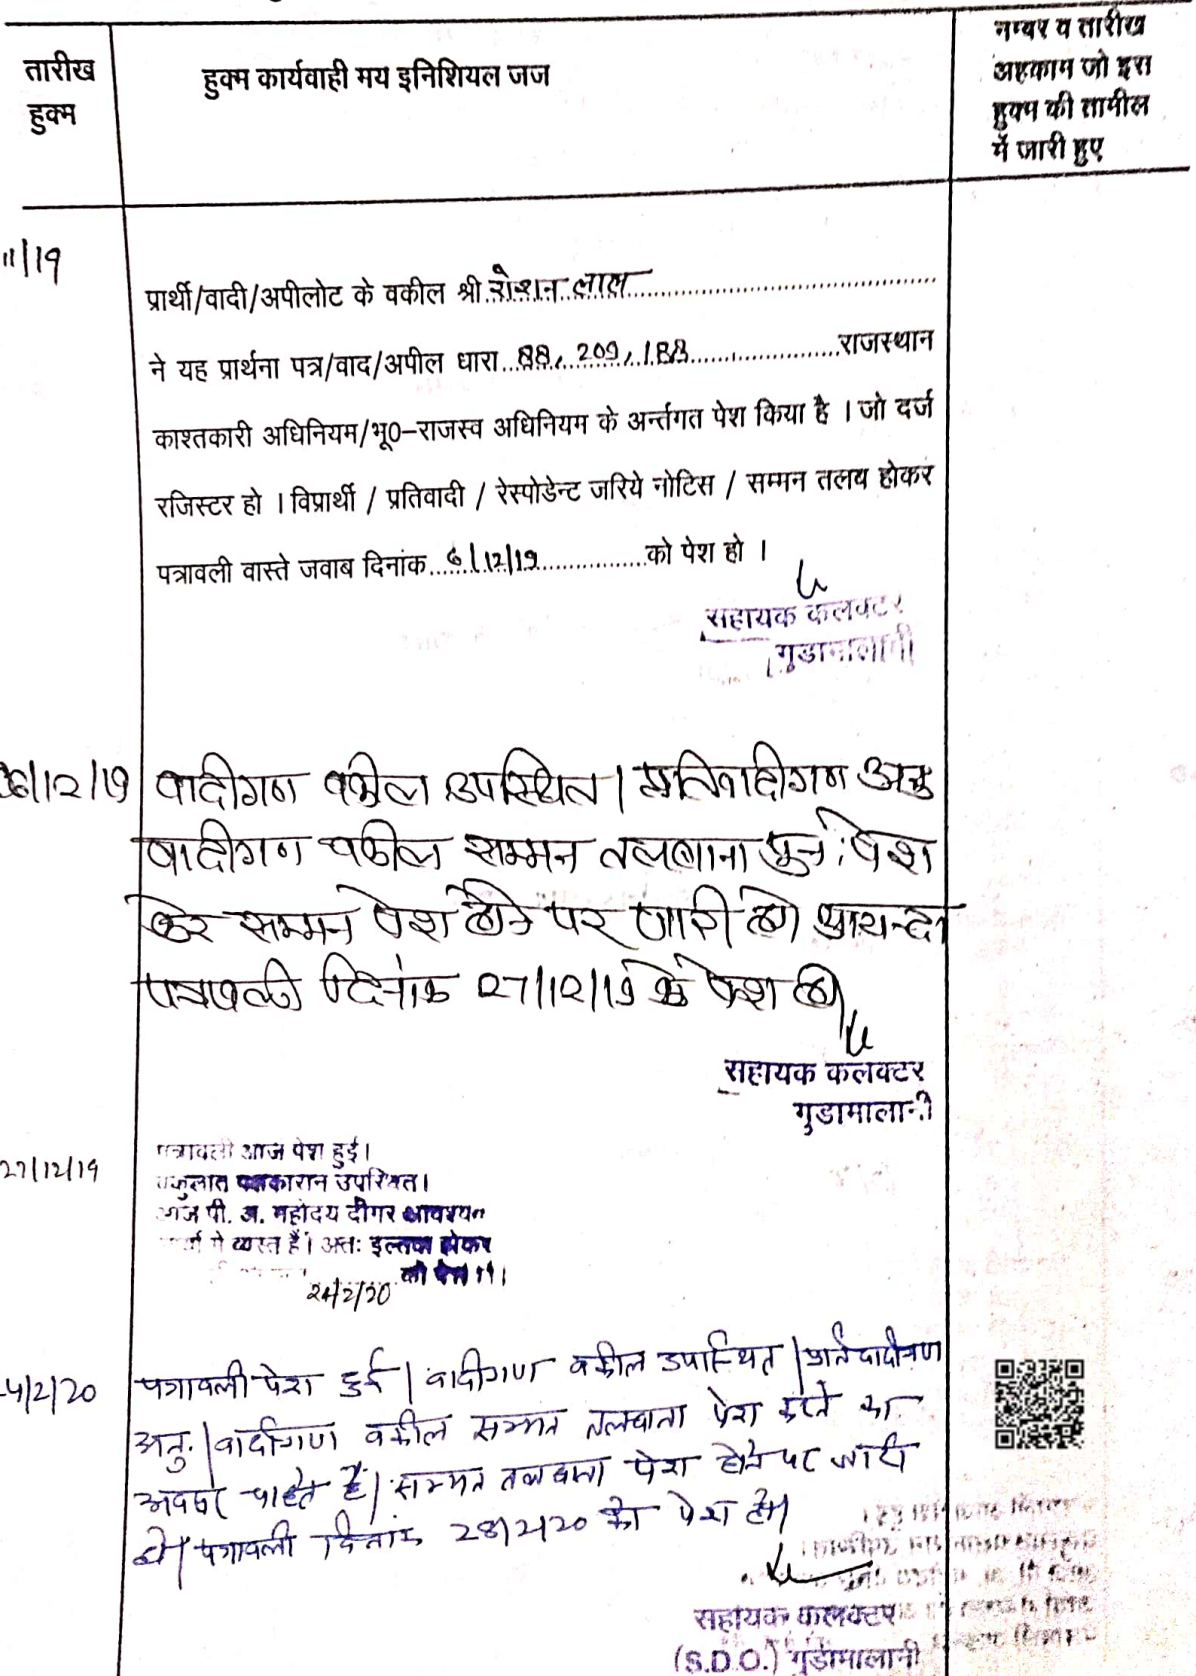 तारीख
हुक्म
हुक्म कार्यवाही मय इनिशियल जज
नम्बर व तारीख
अहकाम जो इस
हुक्म की तामील
में जारी हुए
11/19
प्रार्थी/वादी/अपीलोट के वकील श्री रोशन लाल
ने यह प्रार्थना पत्र/वाद/अपील धारा 88, 209, 188 राजस्थान
काश्तकारी अधिनियम/भू0-राजस्व अधिनियम के अर्न्तगत पेश किया है । जो दर्ज
रजिस्टर हो । विप्रार्थी / प्रतिवादी / रेस्पोडेन्ट जरिये नोटिस / सम्मन तलब होकर
पत्रावली वास्ते जवाब दिनांक 6/12/19 को पेश हो ।
सहायक कलक्टर
गुडामालानी
06/12/19 वादीगण वकील उपस्थित। प्रतिवादीगण अनु
वादीगण वकील सम्मन तलबाना पुनः पेश
करे सम्मन पेश होने पर जारी हो आयन्दा
पत्रावली दिनांक 27/12/19 को पेश हो
सहायक कलक्टर
गुडामालानी
27/12/19
पत्रावली आज पेश हुई।
वकुलात पक्षकारान उपस्थित।
आज पी. अ. महोदय दीगर आवश्यक
कार्यो मे व्यस्त है। अतः इल्तवा होकर
24/2/20 को पेश हो।
4/2/20 पत्रावली पेश हुई। वादीगण वकील उपस्थित। प्रतिवादीगण
अनु.। वादीगण वकील सम्मन तलबाना पेश करने का
अवसर चाहते है। सम्मन तलबाना पेश होने पर जारी
हो। पत्रावली दिनांक 28/2/20 को पेश हो।
सहायक कलक्टर
(S.D.O.) गुडामालानी